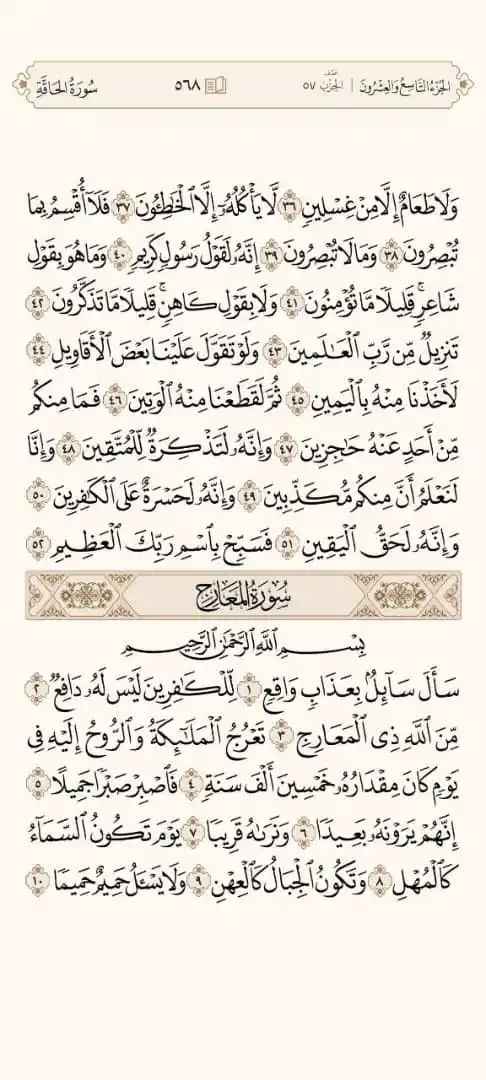 الجُزْءُ التَّاسِعُ وَالعِشْرُونَ | نصف الحِزْبُ ٥٧ ٥٦٨ سُورَةُ الحَاقَّةِ
وَلَا طَعَامٌ إِلَّا مِنْ غِسْلِينٍ ٣٦ لَّا يَأْكُلُهُۥٓ إِلَّا ٱلْخَـٰطِـُٔونَ ٣٧ فَلَآ أُقْسِمُ بِمَا
تُبْصِرُونَ ٣٨ وَمَا لَا تُبْصِرُونَ ٣٩ إِنَّهُۥ لَقَوْلُ رَسُولٍ كَرِيمٍ ٤٠ وَمَا هُوَ بِقَوْلِ
شَاعِرٍ ۚ قَلِيلًا مَّا تُؤْمِنُونَ ٤١ وَلَا بِقَوْلِ كَاهِنٍ ۚ قَلِيلًا مَّا تَذَكَّرُونَ ٤٢
تَنزِيلٌ مِّن رَّبِّ ٱلْعَـٰلَمِينَ ٤٣ وَلَوْ تَقَوَّلَ عَلَيْنَا بَعْضَ ٱلْأَقَاوِيلِ ٤٤
لَأَخَذْنَا مِنْهُ بِٱلْيَمِينِ ٤٥ ثُمَّ لَقَطَعْنَا مِنْهُ ٱلْوَتِينَ ٤٦ فَمَا مِنكُم
مِّنْ أَحَدٍ عَنْهُ حَـٰجِزِينَ ٤٧ وَإِنَّهُۥ لَتَذْكِرَةٌ لِّلْمُتَّقِينَ ٤٨ وَإِنَّا
لَنَعْلَمُ أَنَّ مِنكُم مُّكَذِّبِينَ ٤٩ وَإِنَّهُۥ لَحَسْرَةٌ عَلَى ٱلْكَـٰفِرِينَ ٥٠
وَإِنَّهُۥ لَحَقُّ ٱلْيَقِينِ ٥١ فَسَبِّحْ بِٱسْمِ رَبِّكَ ٱلْعَظِيمِ ٥٢
سُورَةُ المَعَارِجِ
بِسْمِ ٱللَّهِ ٱلرَّحْمَـٰنِ ٱلرَّحِيمِ
سَأَلَ سَآئِلٌۢ بِعَذَابٍ وَاقِعٍ ١ لِّلْكَـٰفِرِينَ لَيْسَ لَهُۥ دَافِعٌ ٢
مِّنَ ٱللَّهِ ذِى ٱلْمَعَارِجِ ٣ تَعْرُجُ ٱلْمَلَـٰٓئِكَةُ وَٱلرُّوحُ إِلَيْهِ فِى
يَوْمٍ كَانَ مِقْدَارُهُۥ خَمْسِينَ أَلْفَ سَنَةٍ ٤ فَٱصْبِرْ صَبْرًا جَمِيلًا ٥
إِنَّهُمْ يَرَوْنَهُۥ بَعِيدًا ٦ وَنَرَىٰهُ قَرِيبًا ٧ يَوْمَ تَكُونُ ٱلسَّمَآءُ
كَٱلْمُهْلِ ٨ وَتَكُونُ ٱلْجِبَالُ كَٱلْعِهْنِ ٩ وَلَا يَسْـَٔلُ حَمِيمٌ حَمِيمًا ١٠